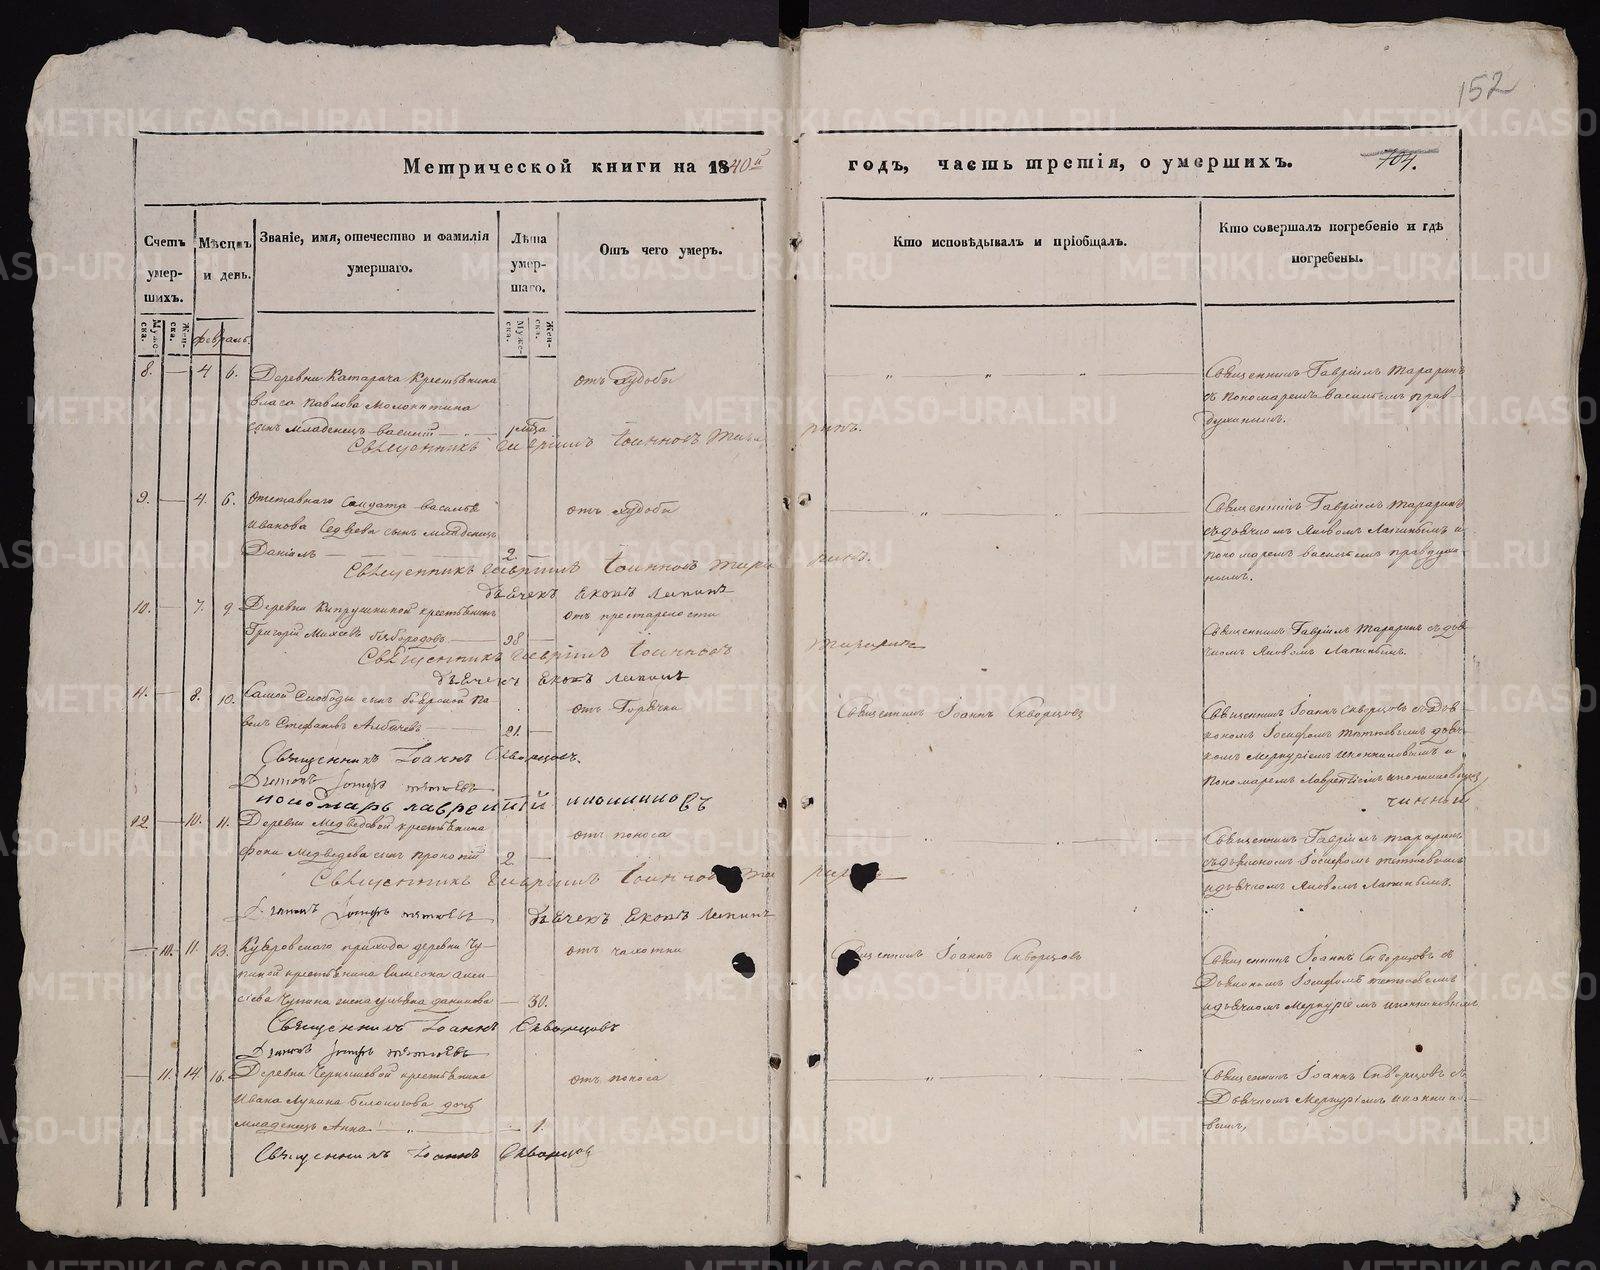 152
Метрической книги на 1840й годъ, часть третія, о умершихъ.
704.
Счетъ умер-шихъ.
Мѣсяцъ и день.
Званіе, имя, отечество и фамилія умершаго.
Лѣта умер-шаго.
Отъ чего умеръ.
Кто исповѣдывалъ и пріобщалъ.
Кто совершалъ погребеніе и гдѣ погребены.
Муже-ска.
Жен-ска.
Муже-ска.
Жен-ска.
февраль.
8. — 4 6.
Деревни Катарача крестьянина
Власа Павлова Молокитина
сынъ младенецъ Василій
отъ худобы
Священникъ Гавріилъ Тараринъ
съ пономаремъ Василіемъ Прав-
Священникъ Гавріилъ Іоанновъ Тараринъ.
9. — 4. 6.
Отставнаго Солдата Василья
Иванова сынъ младенецъ
Даніилъ — 2 —
отъ худобы
Священникъ Гавріилъ Тараринъ
съ дьячкомъ Яковомъ Лапинымъ и
пономаремъ Василіемъ
Священникъ Гавріилъ Іоанновъ Тараринъ.
дьячекъ Яковъ Лапинъ
10. — 7. 9
Деревни Кипрушкиной крестьянинъ
Григорій Михеевъ Безбородовъ — 98 —
отъ престарелости
Священникъ Гавріилъ Тараринъ съ дья-
чкомъ Яковомъ Лапинымъ.
Священникъ Гавріилъ Іоанновъ Тараринъ
дьячекъ Яковъ Лапинъ
11. — 8. 10.
Самой Слободы сынъ Боярской Па-
велъ Стефановъ Албычевъ — 21. —
отъ Горячки
Священникъ Іоаннъ Скворцовъ
Священникъ Іоаннъ Скворцовъ съ Дья-
кономъ Іосифомъ дьяч-
комъ Меркуріемъ Иконниковымъ и
пономаремъ Лаврентіемъ Иконниковымъ
Священникъ Іоаннъ Скворцовъ.
Діаконъ Іосифъ
Пономарь Лаврентій Иконниковъ
12 — 10. 11.
Деревни Медведевой крестьянина
Фоки Медведева сынъ Прокопій 2 —
отъ поноса
Священникъ Гавріилъ Тараринъ
съ дьякономъ Іосифомъ
и дьячкомъ Яковомъ Лапинымъ.
Священникъ Гавріилъ Іоанновъ Тараринъ
Діаконъ Іосифъ
дьячекъ Яковъ Лапинъ
— 10. 11. 13.
прихода деревни Чу-
пиной крестьянина Симеона Алек-
сіева Чупина жена Ульяна Данилова — 30.
отъ чахотки
Священникъ Іоаннъ Скворцовъ
Священникъ Іоаннъ Скворцовъ съ
Дьякономъ Іосифомъ
и дьячкомъ Меркуріемъ Иконниковымъ
Священникъ Іоаннъ Скворцовъ
Діаконъ Іосифъ
— 11. 14. 16.
Деревни Чернышевой крестьянина
Ивана Лукина Белоногова дочь
младенецъ Анна — 1.
отъ поноса
Священникъ Іоаннъ Скворцовъ съ
Дьячкомъ Меркуріемъ Иконнико-
вымъ,
Священникъ Іоаннъ Скворцов
METRIKI.GASO-URAL.RU